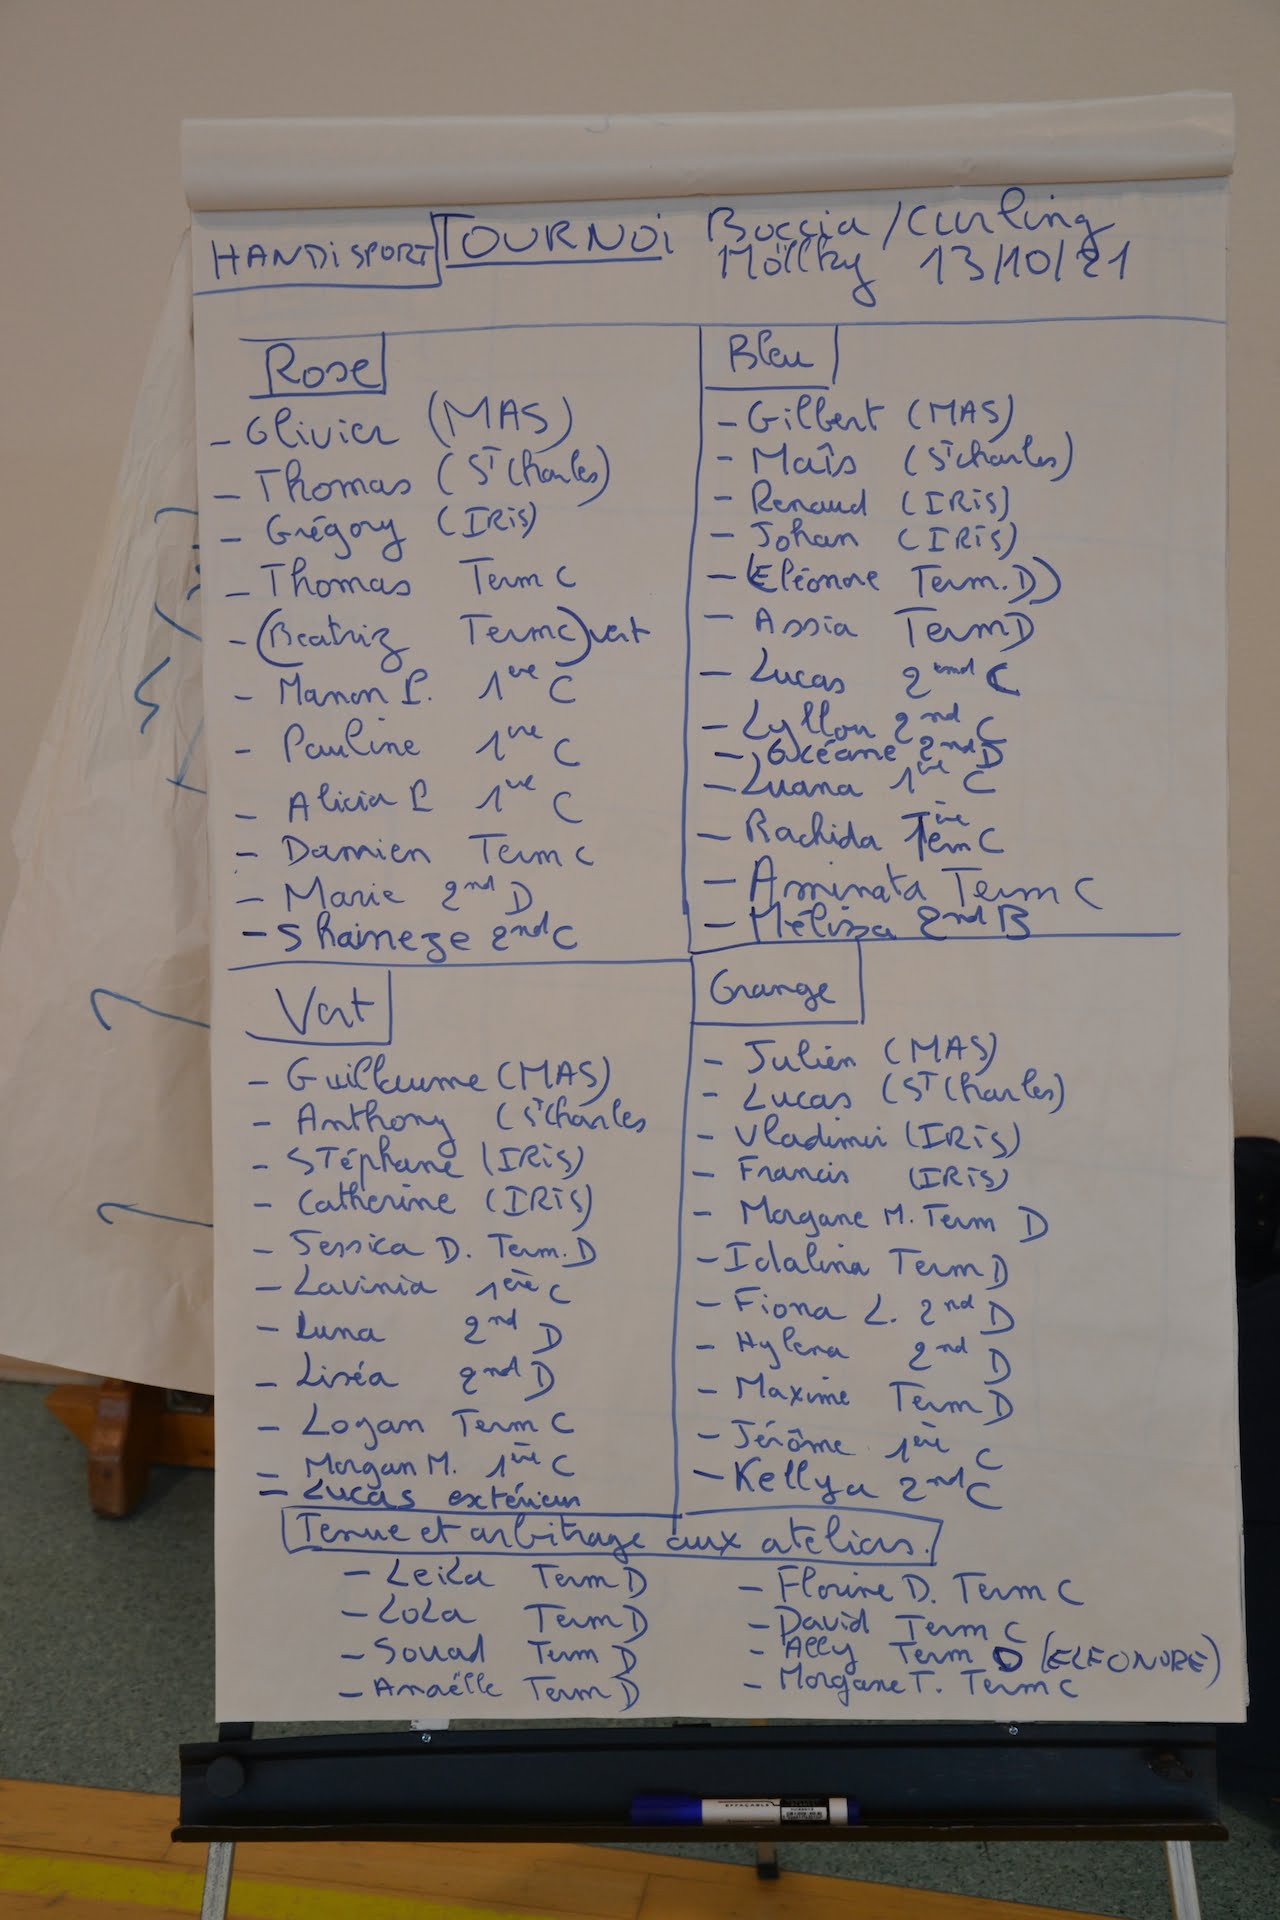 HANDISPORT TOURNOI Boccia / Curling
Mölky 13/10/21
Rose
- Olivier (MAS)
- Thomas (St Charles)
- Grégory (IRIS)
- Thomas Term C
- (Beatriz Term C) vert
- Manon P. 1ère C
- Pauline 1ère C
- Alicia P 1ère C
- Damien Term C
- Marie 2nd D
- Shaineze 2nd C
Bleu
- Gilbert (MAS)
- Maîs (St Charles)
- Renaud (IRIS)
- Johan (IRIS)
- (Eléonore Term. D)
- Assia Term D
- Lucas 2end C
- Lyllou 2nd C
- Océane 2nd D
- Luana 1ère C
- Rachida C
- Aminata Term C
- Mélissa 2nd B
Vert
- Guillaume (MAS)
- Anthony (St Charles
- Stéphane (IRIS)
- Catherine (IRIS)
- Jessica D. Term. D
- Lavinia 1ère C
- Luna 2nd D
- Liséa 2nd D
- Logan Term C
- Morgan M. 1ère C
- Lucas extérieur
Orange
- Julien (MAS)
- Lucas (St Charles)
- Vladimir (IRIS)
- Francis (IRIS)
- Morgane M. Term D
- Idalina Term D
- Fiona L. 2nd D
- Hylena 2nd D
- Maxime Term D
- Jérôme 1ère C
- Kellya 2nd C
Tenue et arbitrage aux ateliers.
- Leila Term D
- Lola Term D
- Souad Term D
- Anaëlle Term D
- Florine D. Term C
- David Term C
- Ally Term D (ELEONORE)
- Morgane T. Term C
EFFAÇABLE